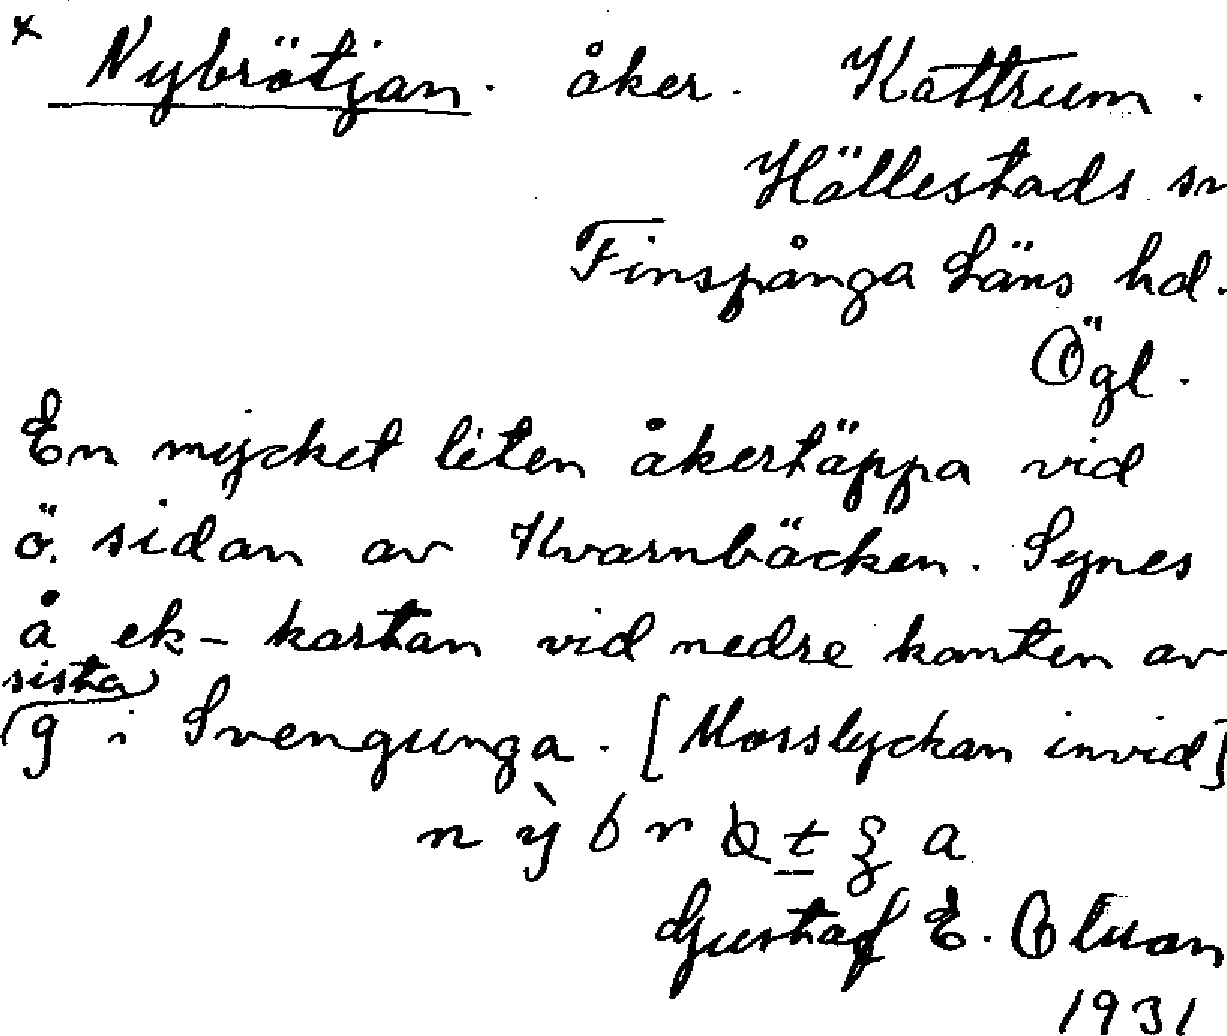 x Nybrötjan. åker. Kattrum.
Hällestads sn
Finspånga Läns hd.
Ögl.
En mycket liten åkertäppa vid
ö. sidan av Kvarnbäcken. Synes
å ek-kartan vid nedre kanten av
sista
g i Svengunga. [Mosslyckan invid]
Gustaf E.
1931